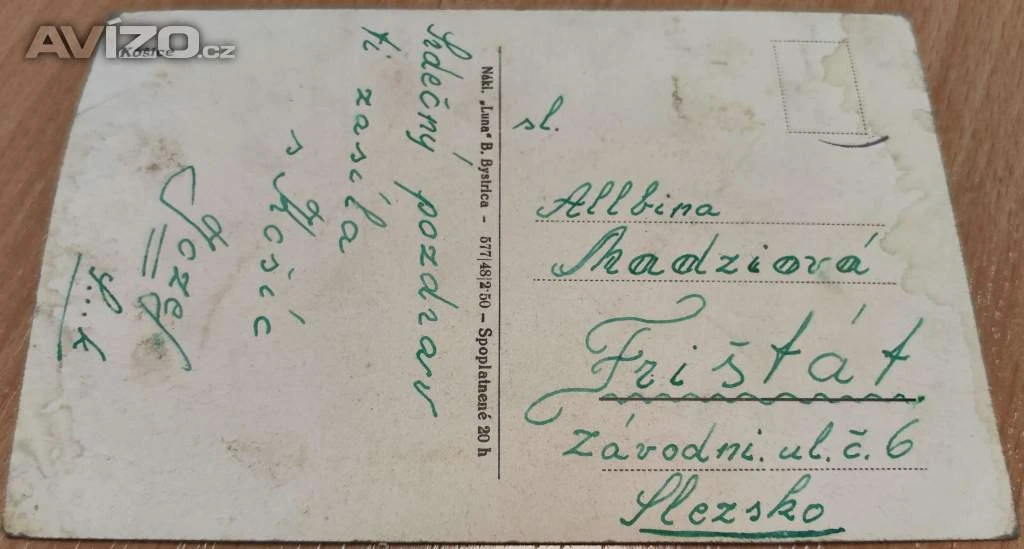 AVÍZO.cz
Košice
Srdečný pozdrav
ti zasíla
s Košíc
Jozef
Nákl. „Luna“ B. Bystrica – 577|48|2·50 – Spoplatnené 20 h
sl.
Allbina
Madziová
Frištát
Závodni. ul. č. 6
Slezsko